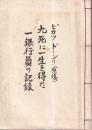 ピカッ、ドン！（原爆）
九死に一生を得た
一銀行員の記録